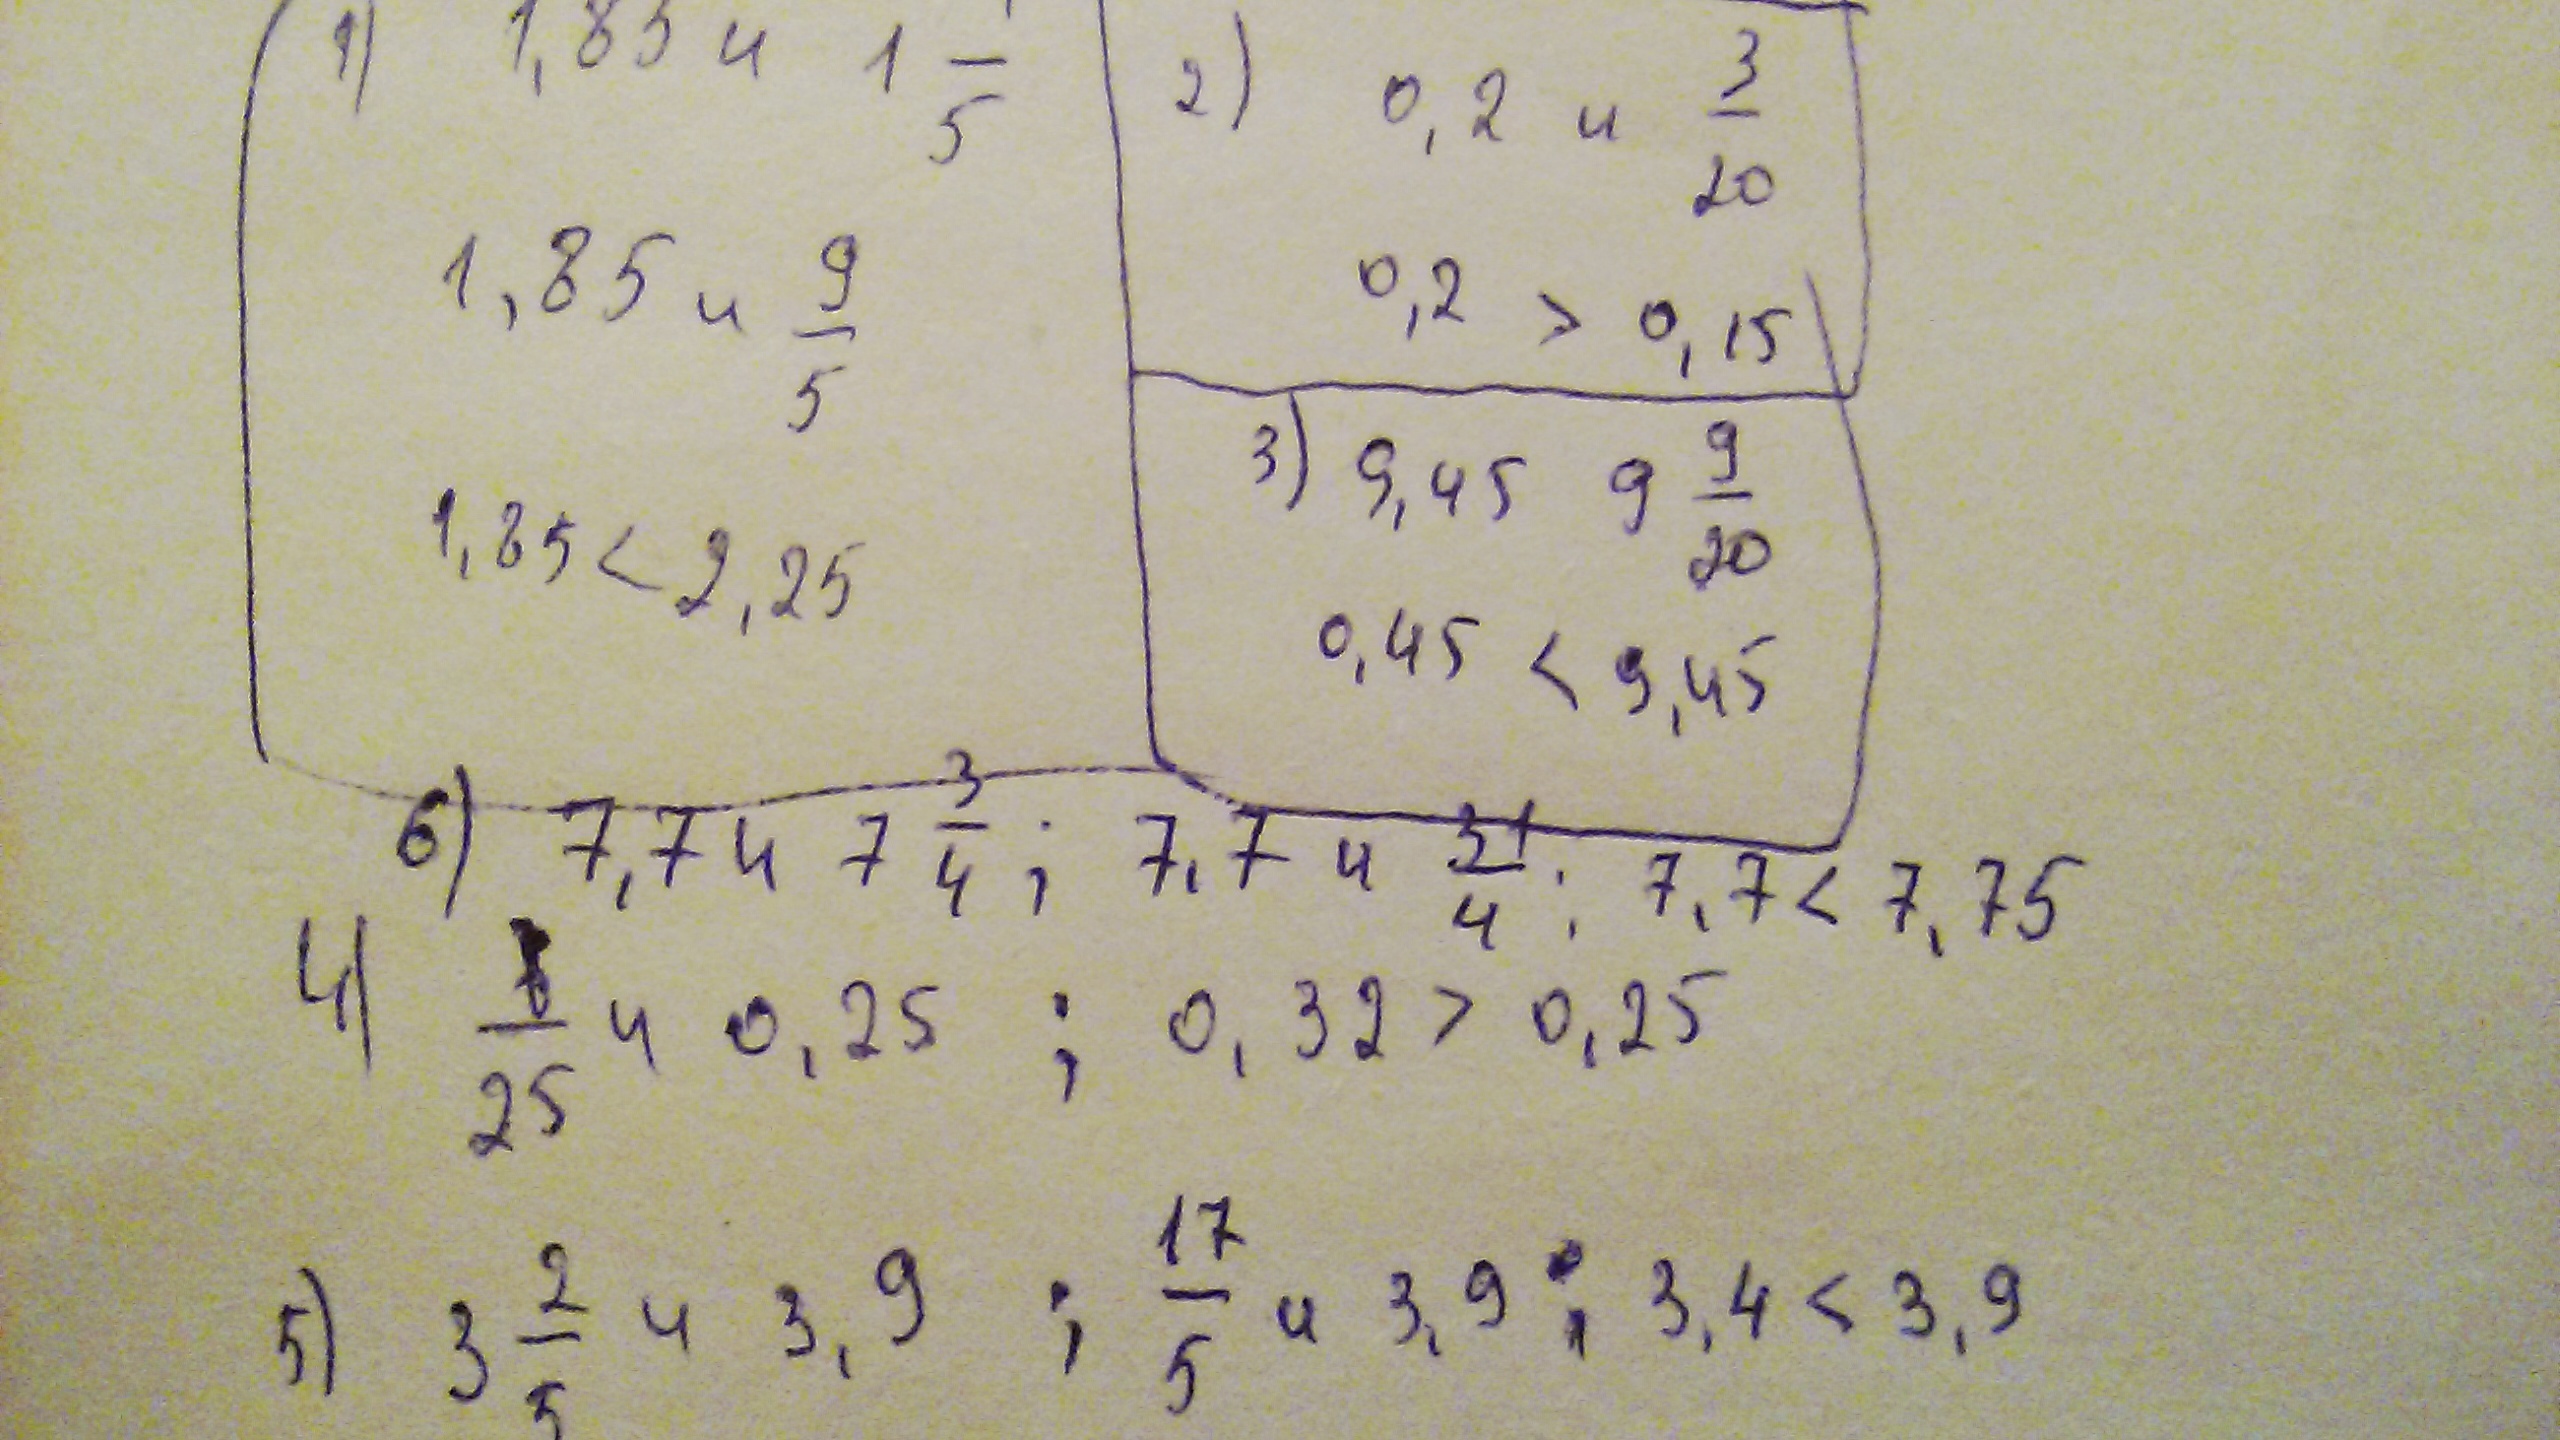 1) 1,85 и 1 —/5
1,85 и 9/5
1,85 < 2,25
2) 0,2 и 3/20
0,2 > 0,15
3) 9,45 9 9/20
0,45 < 9,45
6) 7,7 и 7 3/4 ; 7,7 и 31/4 ; 7,7 < 7,75
4) /25 и 0,25 ; 0,32 > 0,25
5) 3 2/5 и 3,9 ; 17/5 и 3,9 ; 3,4 < 3,9